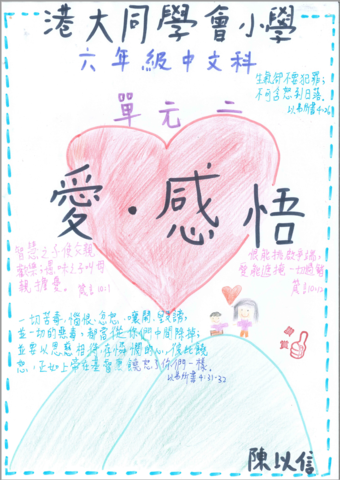 港大同學會小學
六年級中文科
生氣卻不要犯罪；
不可含怒到日落。
以弗所書4:26
單元二
愛·感悟
智慧之子使父親
歡樂；愚昧之子叫母
親擔憂。
箴言10:1
恨能挑啟爭端，
愛能遮掩一切過錯
箴言10:12
一切苦毒、惱恨、忿怒、嚷鬧、毀謗，
並一切的惡毒，都當從你們中間除掉；
並要以恩慈相待，存憐憫的心，彼此饒
恕，正如上帝在基督裏饒恕了你們一樣。
以弗所書4:31-32
讚
陳以信